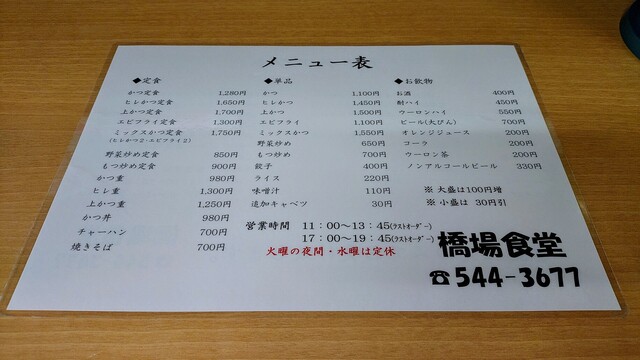 メニュー表
◆定食
かつ定食 1,280円
ヒレかつ定食 1,650円
上かつ定食 1,700円
エビフライ定食 1,300円
ミックスかつ定食 1,750円
(ヒレかつ2・エビフライ2)
野菜炒め定食 850円
もつ炒め定食 900円
かつ重 980円
ヒレ重 1,300円
上かつ重 1,250円
かつ丼 980円
チャーハン 700円
焼きそば 700円
◆単品
かつ 1,100円
ヒレかつ 1,450円
上かつ 1,500円
エビフライ 1,100円
ミックスかつ 1,550円
野菜炒め 650円
もつ炒め 700円
餃子 400円
ライス 220円
味噌汁 110円
追加キャベツ 30円
◆お飲物
お酒 400円
酎ハイ 450円
ウーロンハイ 550円
ビール(大びん) 700円
オレンジジュース 200円
コーラ 200円
ウーロン茶 200円
ノンアルコールビール 330円
※ 大盛は100円増
※ 小盛は 30円引
営業時間 11：00～13：45(ラストオーダー)
17：00～19：45(ラストオーダー)
火曜の夜間・水曜は定休
橋場食堂
☎544-3677